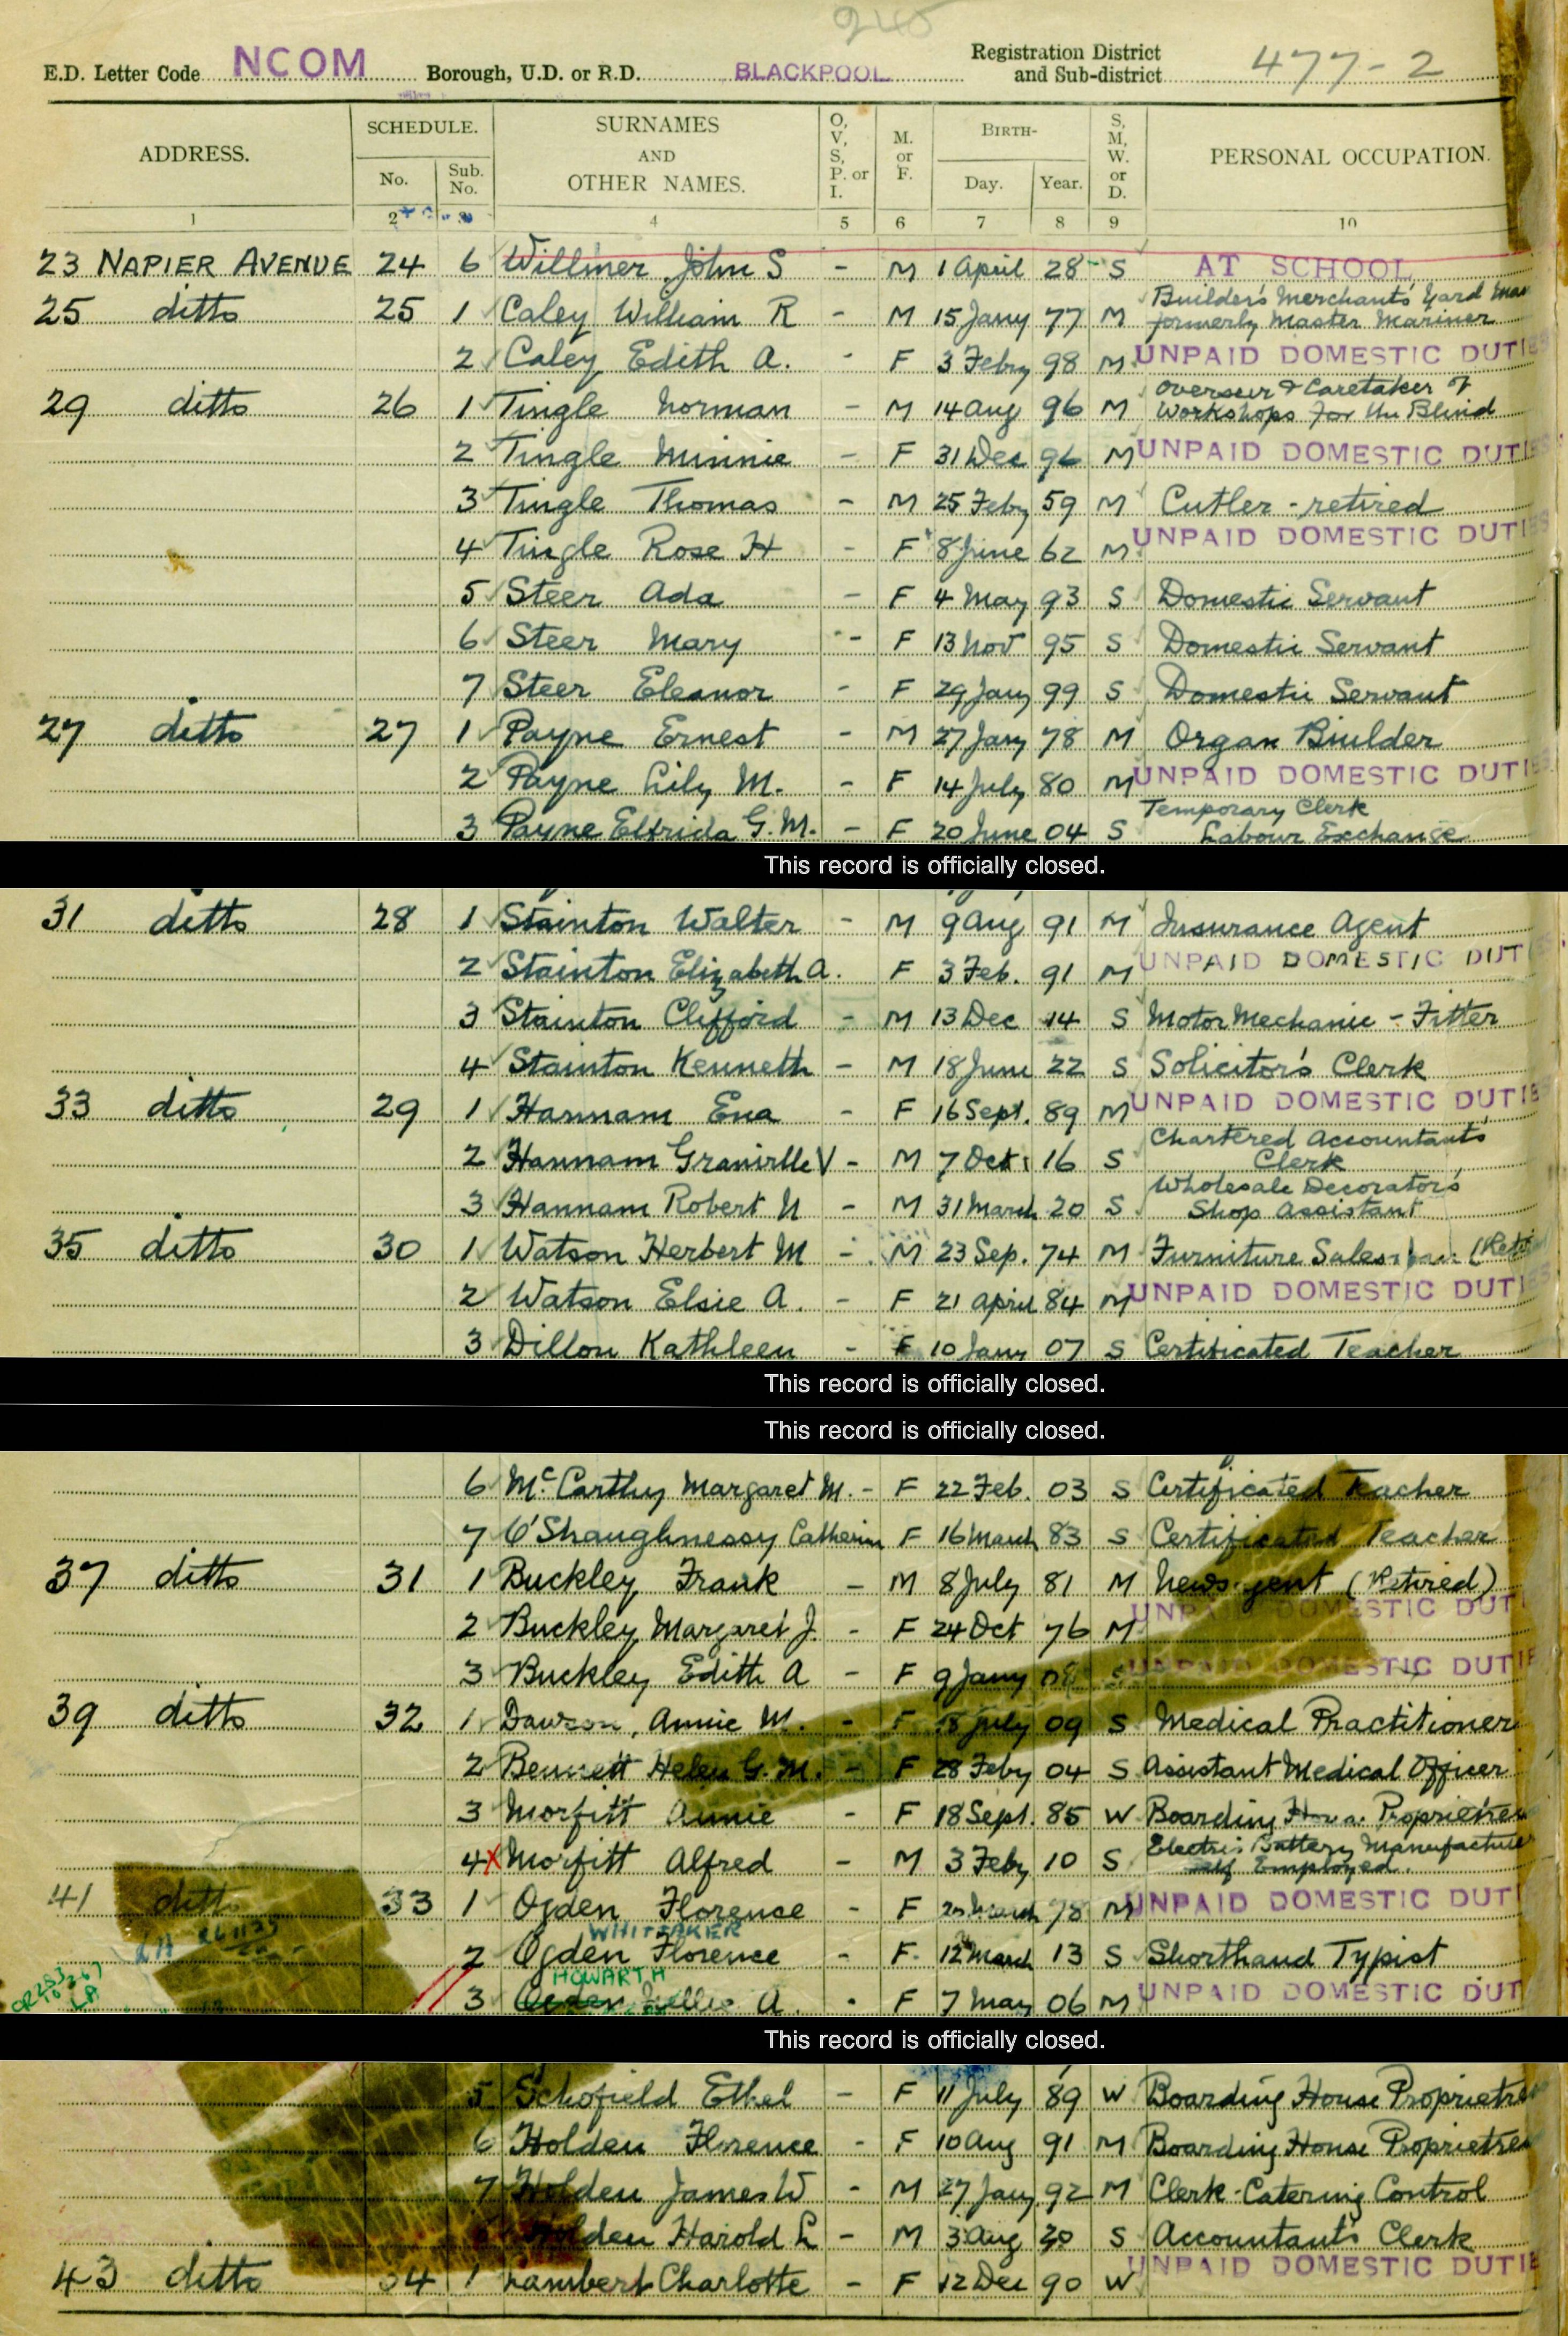 245
E.D. Letter Code NCOM Borough, U.D. or R.D. BLACKPOOL Registration District and Sub-district 477-2
ADDRESS. SCHEDULE. No. Sub. No. SURNAMES AND OTHER NAMES. O, V, S, P. or I. M. or F. BIRTH- Day. Year. S, M, W. or D. PERSONAL OCCUPATION.
1 2 3 4 5 6 7 8 9 10
23 NAPIER AVENUE 24 6 Willmer John S - M 1 April 28 S AT SCHOOL
25 ditto 25 1 Caley William R - M 15 Jany 77 M Builder's Merchants' Yard Man formerly Master Mariner
2 Caley Edith A. - F 3 Febry 98 M UNPAID DOMESTIC DUTIES
29 ditto 26 1 Tingle Norman - M 14 Aug 96 M Overseer & Caretaker of Workshops for the Blind
2 Tingle Minnie - F 31 Dec 96 M UNPAID DOMESTIC DUTIES
3 Tingle Thomas - M 25 Feby 59 M Cutler - retired
4 Tingle Rose H - F 8 June 62 M UNPAID DOMESTIC DUTIES
5 Steer Ada - F 4 May 93 S Domestic Servant
6 Steer Mary - F 13 Nov 95 S Domestic Servant
7 Steer Eleanor - F 29 Jany 99 S Domestic Servant
27 ditto 27 1 Payne Ernest - M 27 Jany 78 M Organ Builder
2 Payne Lily M. - F 14 July 80 M UNPAID DOMESTIC DUTIES
3 Payne Elfrida G. M. - F 20 June 04 S Temporary Clerk Labour Exchange
This record is officially closed.
31 ditto 28 1 Stainton Walter - M 9 Aug 91 M Insurance Agent
2 Stainton Elizabeth A. F 3 Feb. 91 M UNPAID DOMESTIC DUTIES
3 Stainton Clifford - M 13 Dec 14 S Motor Mechanic - Fitter
4 Stainton Kenneth - M 18 June 22 S Solicitor's Clerk
33 ditto 29 1 Hannam Ena - F 16 Sept. 89 M UNPAID DOMESTIC DUTIES
2 Hannam Granville V - M 7 Oct 16 S Chartered Accountants' Clerk
3 Hannam Robert N - M 31 March 20 S Wholesale Decorator's Shop Assistant
35 ditto 30 1 Watson Herbert M - M 23 Sep. 74 M Furniture Salesman (Ret
2 Watson Elsie A. - F 21 April 84 M UNPAID DOMESTIC DUTIES
3 Dillon Kathleen - F 10 Jany 07 S Certificated Teacher
This record is officially closed.
This record is officially closed.
6 McCarthy Margaret M. - F 22 Feb. 03 S Certificated Teacher
7 O'Shaughnessy Catherin F 16 March 83 S Certificated Teacher
37 ditto 31 1 Buckley Frank - M 8 July 81 M Newsagent (Retired)
2 Buckley Margaret J. - F 24 Oct 76 M UNPAID DOMESTIC DUTI
3 Buckley Edith A - F 9 Jany 08 S UNPAID DOMESTIC DUTIE
39 ditto 32 1 Dawson, Annie M. - F 18 July 09 S Medical Practitioner
2 Bennett Helen G. M. - F 28 Feby 04 S Assistant Medical Officer
3 Morfitt Annie - F 18 Sept. 85 W Boarding House Proprietress
4 X Morfitt Alfred - M 3 Feby 10 S Electric Battery Manufacturer self Employed.
41 ditto 33 1 Ogden Florence - F March 78 M UNPAID DOMESTIC DUTI
WHITTAKER
2 Ogden Florence - F. 12 March 13 S Shorthand Typist
HOWARTH
3 Ogden Nellie A. - F 7 May 06 M UNPAID DOMESTIC DUT
This record is officially closed.
5 Schofield Ethel - F 11 July 89 W Boarding House Proprietress
6 Holden Florence - F 10 Aug 91 M Boarding House Proprietress
7 Holden James W - M 27 Jany 92 M Clerk - Catering Control
Holden Harold L - M 3 Aug 20 S Accountant's Clerk
43 ditto 34 1 Lambert Charlotte - F 12 Dec 90 W UNPAID DOMESTIC DUTIE